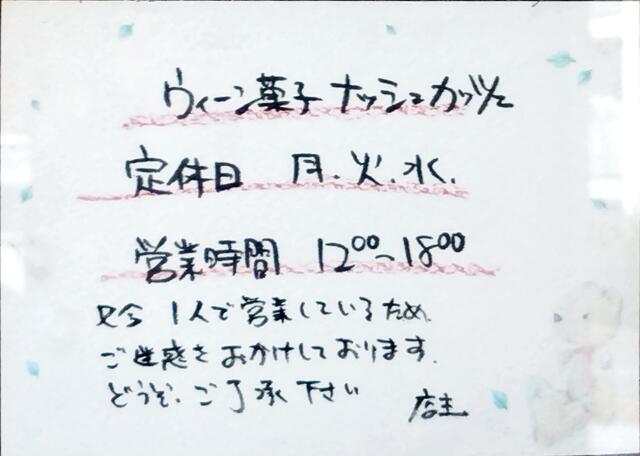 ウィーン菓子 ナッシュカッツェ
定休日 月.火.水.
営業時間 1200~1800
只今 1人で営業しているため
ご迷惑をおかけしております.
どうぞ.ご了承下さい
店主